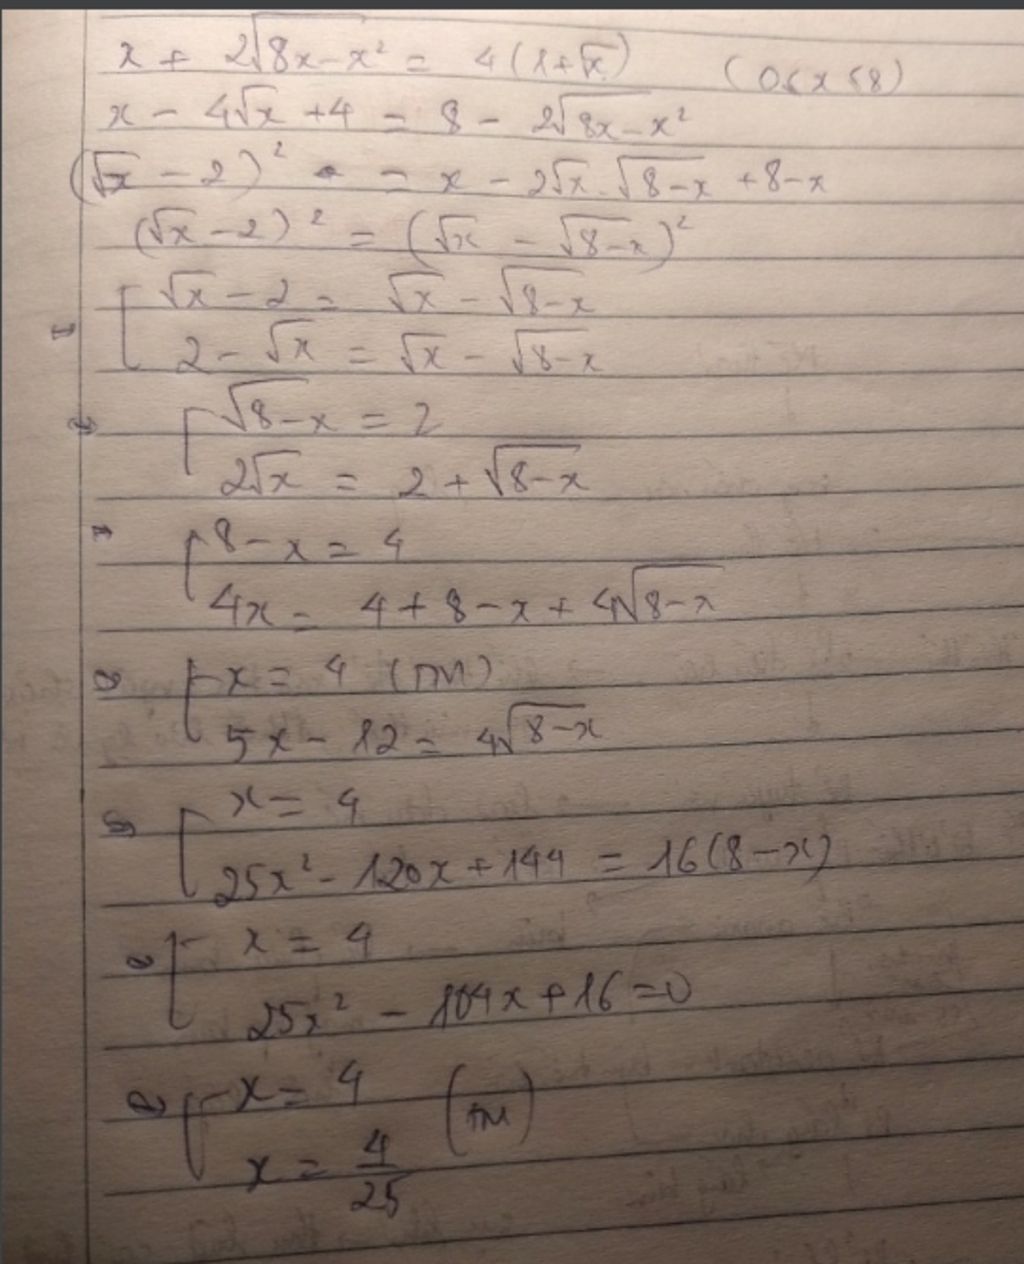 x + 2√(8x-x²) = 4(1+√x) (0≤x≤8)
x - 4√x + 4 = 8 - 2√(8x-x²)
(√x - 2)² = x - 2√x.√(8-x) + 8-x
(√x - 2)² = (√x - √(8-x))²
[ √x - 2 = √x - √(8-x)
2 - √x = √x - √(8-x)
[ √(8-x) = 2
2√x = 2 + √(8-x)
[ 8 - x = 4
4x = 4 + 8 - x + 4√(8-x)
[ x = 4 (TM)
5x - 12 = 4√(8-x)
[ x = 4
25x² - 120x + 144 = 16(8-x)
[ x = 4
25x² - 104x + 16 = 0
[ x = 4 (TM)
x = 4/25